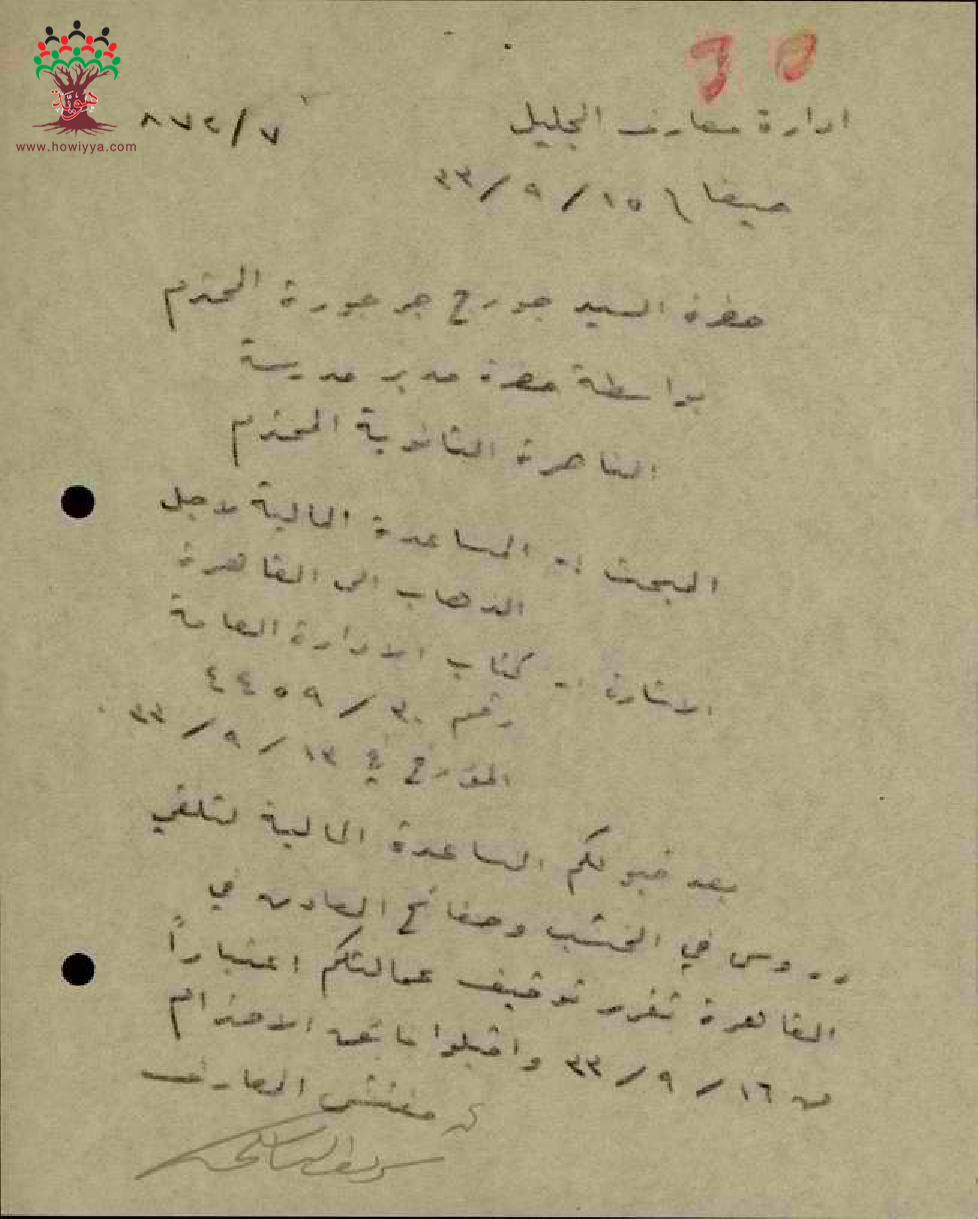 هوية
www.howiyya.com
ادارة معارف الجليل
٧/٨٧٢
حيفا \ ١٥/٩/٣٣
حضرة السيد جورج جرجورة المحترم
بواسطة حضرة مدير مدرسة
الناصرة الثانوية المحترم
المبحث :- المساعدة المالية لاجل
الذهاب الى القاهرة
الاشارة :- كتاب الادارة العامة
رقم ٣٠/٤٤٥٩
المؤرخ في ١٣/٩/٣٣.
بعد قبولكم المساعدة المالية لتلقي
دروس في الخشب وصفائح المعادن في
القاهرة تقرر توقيف عمالتكم اعتباراً
من ١٦/٩/٣٣ واقبلوا فائق الاحترام
مفتش المعارف